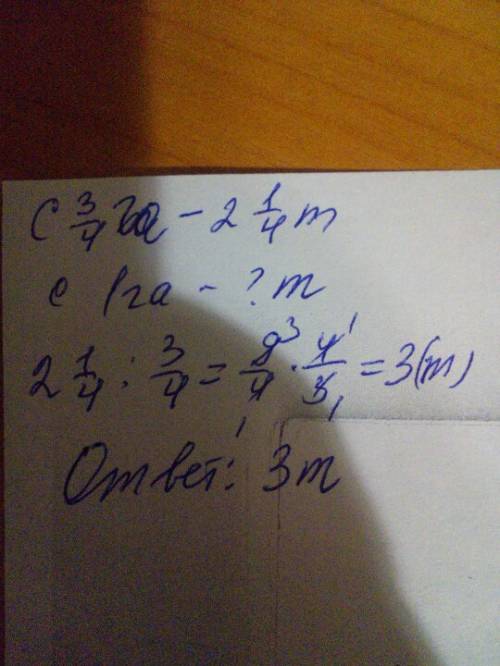 С 3/4 га - 2 1/4 т
с 1 га - ? т
2 1/4 : 3/4 = 9³/4₁ · 4¹/3₁ = 3 (т)
Ответ: 3 т